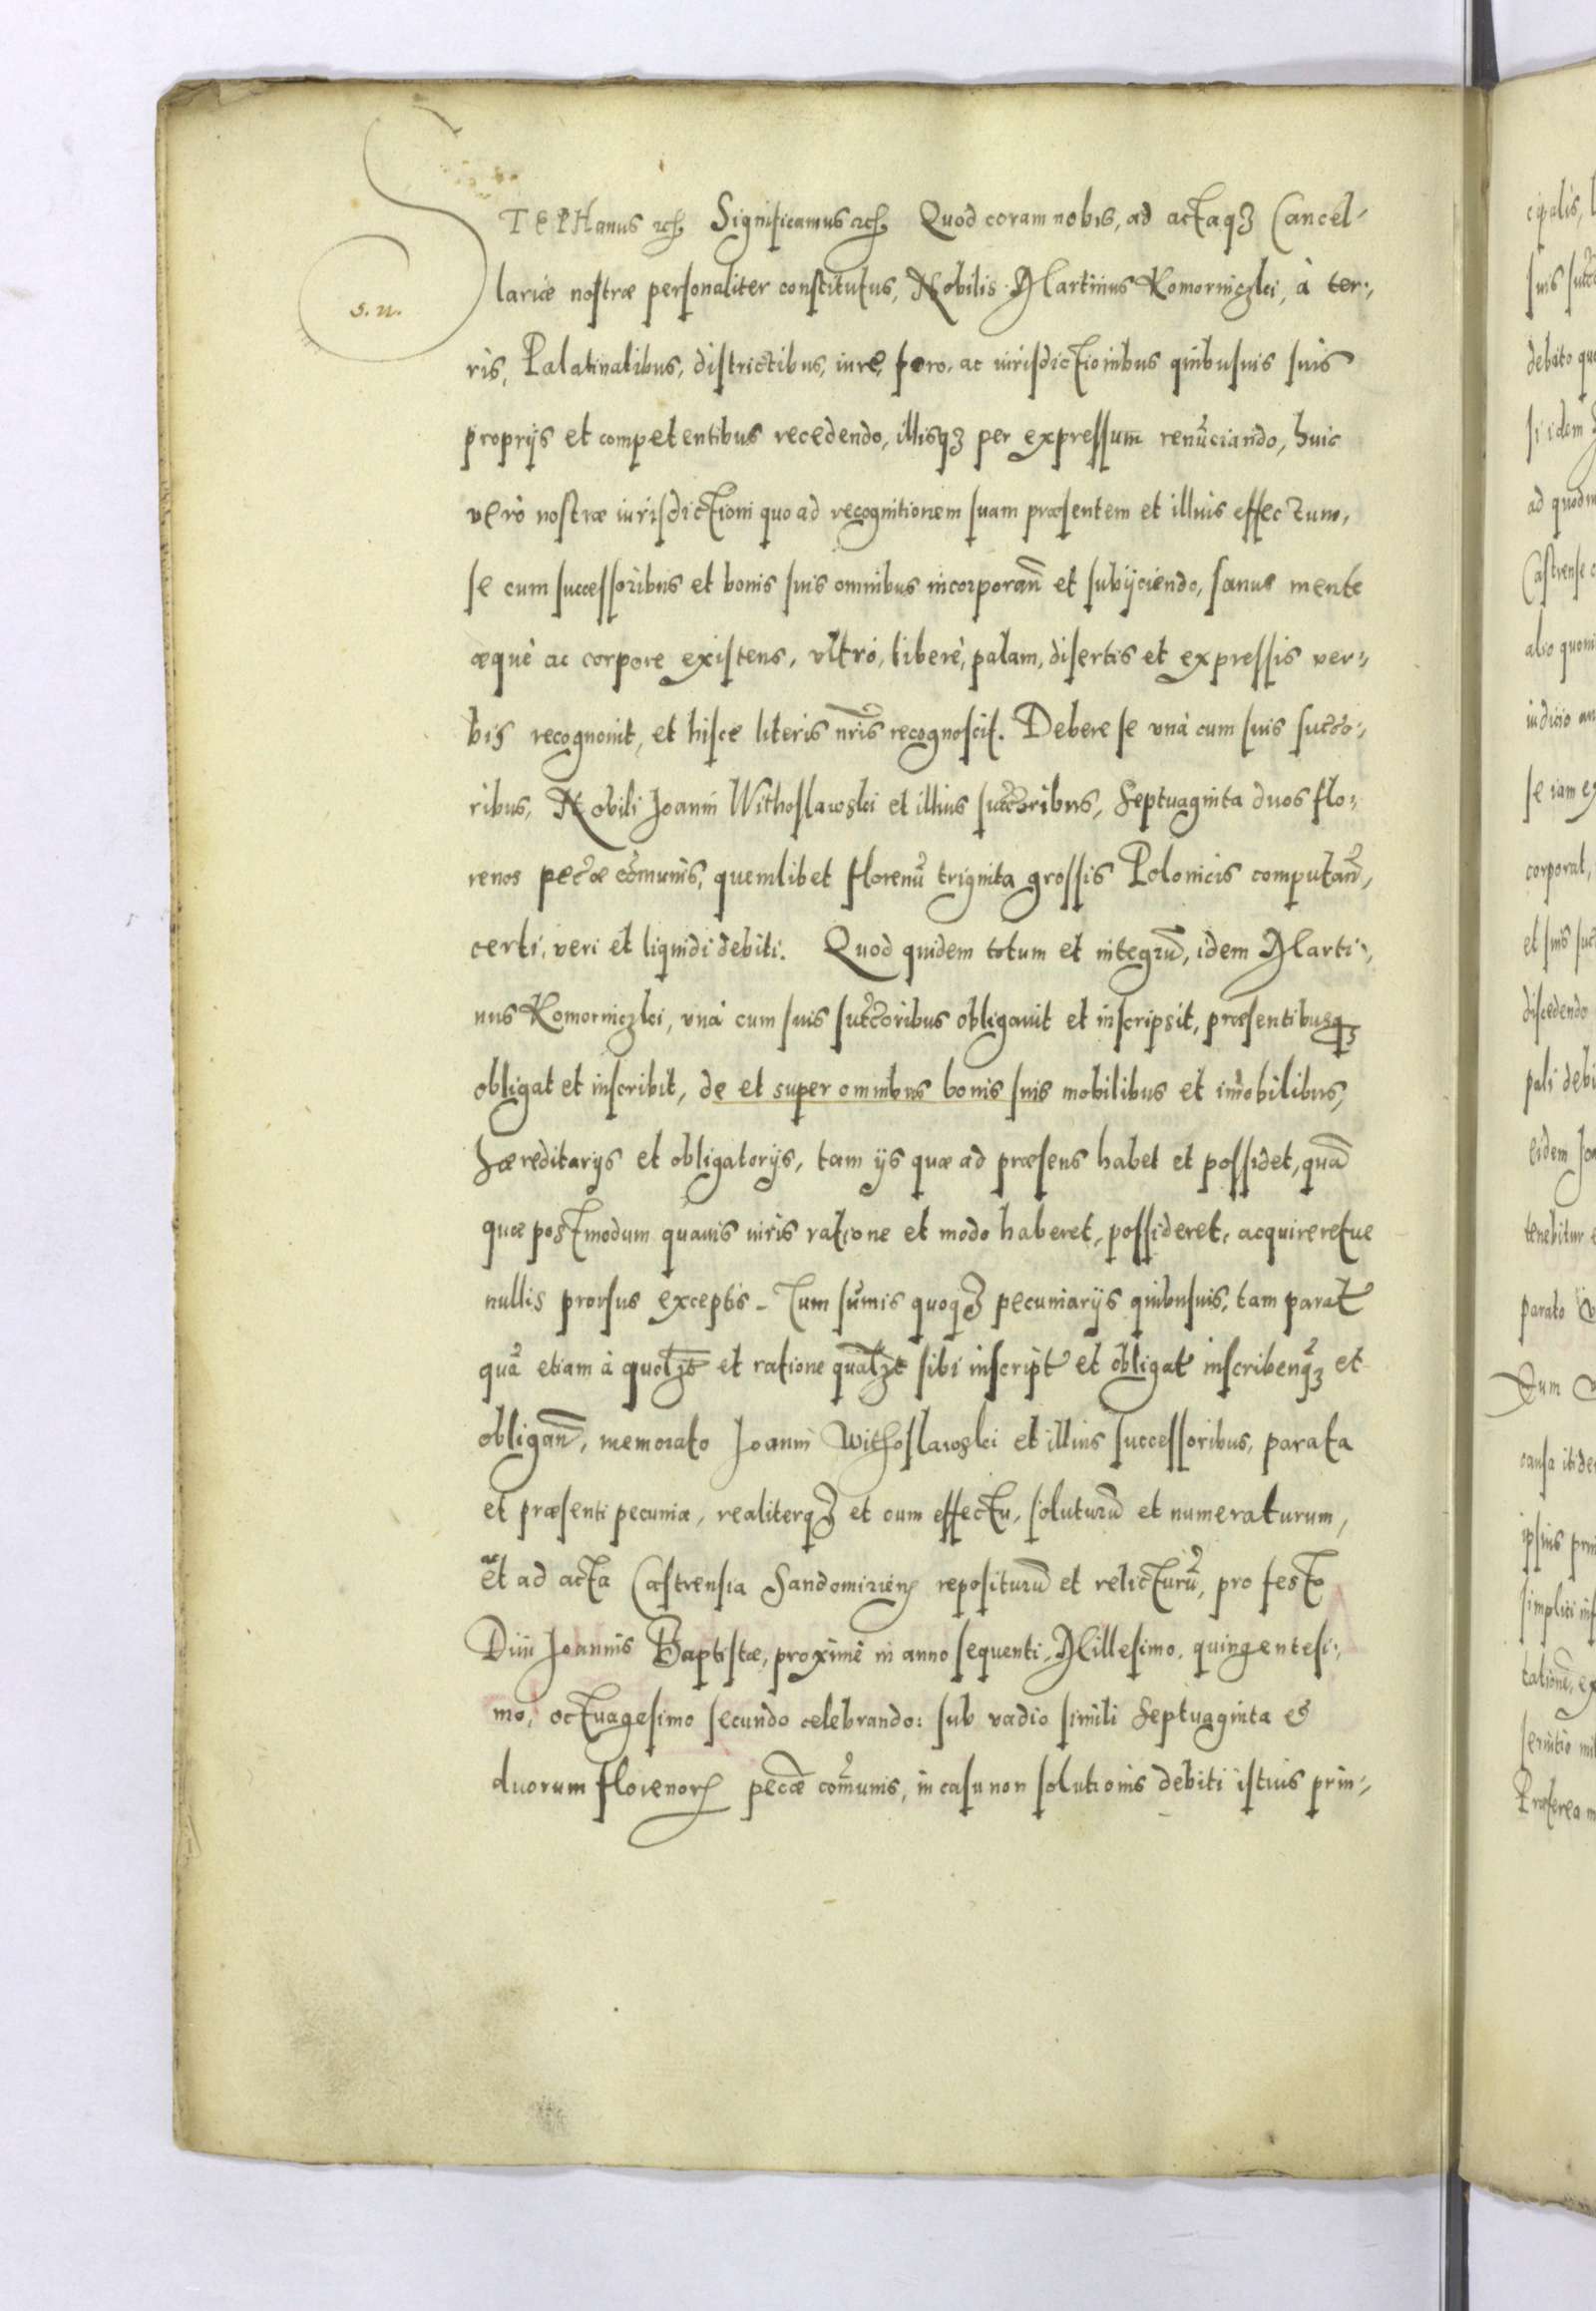 STEPHanus etc. Significamus etc. Quod coram nobis, ad actaqꝫ Cancel-
s. n.
lariæ nostræ personaliter constitutus, Nobilis Martinus Komorniczki, à ter-,
ris, Palatinatibus, districtibus, iure, foro, ac iurisdictionibus quibusuis suis
proprijs et competentibus recedendo, illisqꝫ per expressum renūciando, huic
verò nostræ iurisdictioni quo ad recognitionem suam præsentem et illius effectum,
se cum successoribus et bonis suis omnibus incorporan̄ et subijciendo, sanus mente
æquè ac corpore existens, vltrò, liberè, palam, disertis et expressis ver-,
bis recognouit, et hisce literis nr̄is recognoscit. Debere se vnà cum suis succo-,
ribus, Nobili Joanni Withoslawski et illius succoribus, Septuaginta duos flo-,
renos pecæ cōmunis, quemlibet florenū triginta grossis Polonicis computan̄,
certi, veri et liquidi debiti. Quod quidem totum et integrū, idem Marti-,
nus Komorniczki, vnà cum suis succoribus obligauit et inscripsit, præsentibusqꝫ
obligat et inscribit, de et super omnibus bonis suis mobilibus et im̄obilibus,
hæreditarijs et obligatorijs, tam ijs quæ ad præsens habet et possidet, quā
quæ postmodum quauis iuris ratione et modo haberet, possideret, acquireretue
nullis prorsus exceptis. Tum sūmis quoqꝫ pecuniarijs quibusuis, tam parat
quā etiam à quolꝫt et ratione qualꝫt sibi inscript et obligat inscribenqꝫ et
obligan̄, memorato Joanni Withoslawski et illius successoribus, parata
et præsenti pecunia, realiterqꝫ et cum effectu, soluturū et numeraturum,
et ad acta Castrensia Sandomirien repositurū et relicturū, pro festo
Diui Joannis Baptistæ, proximè in anno sequenti, Millesimo, quingentesi-,
mo, octuagesimo secundo celebrando: sub vadio simili Septuaginta et
duorum florenor pecæ com̄unis, in casu non solutionis debiti istius prin-,